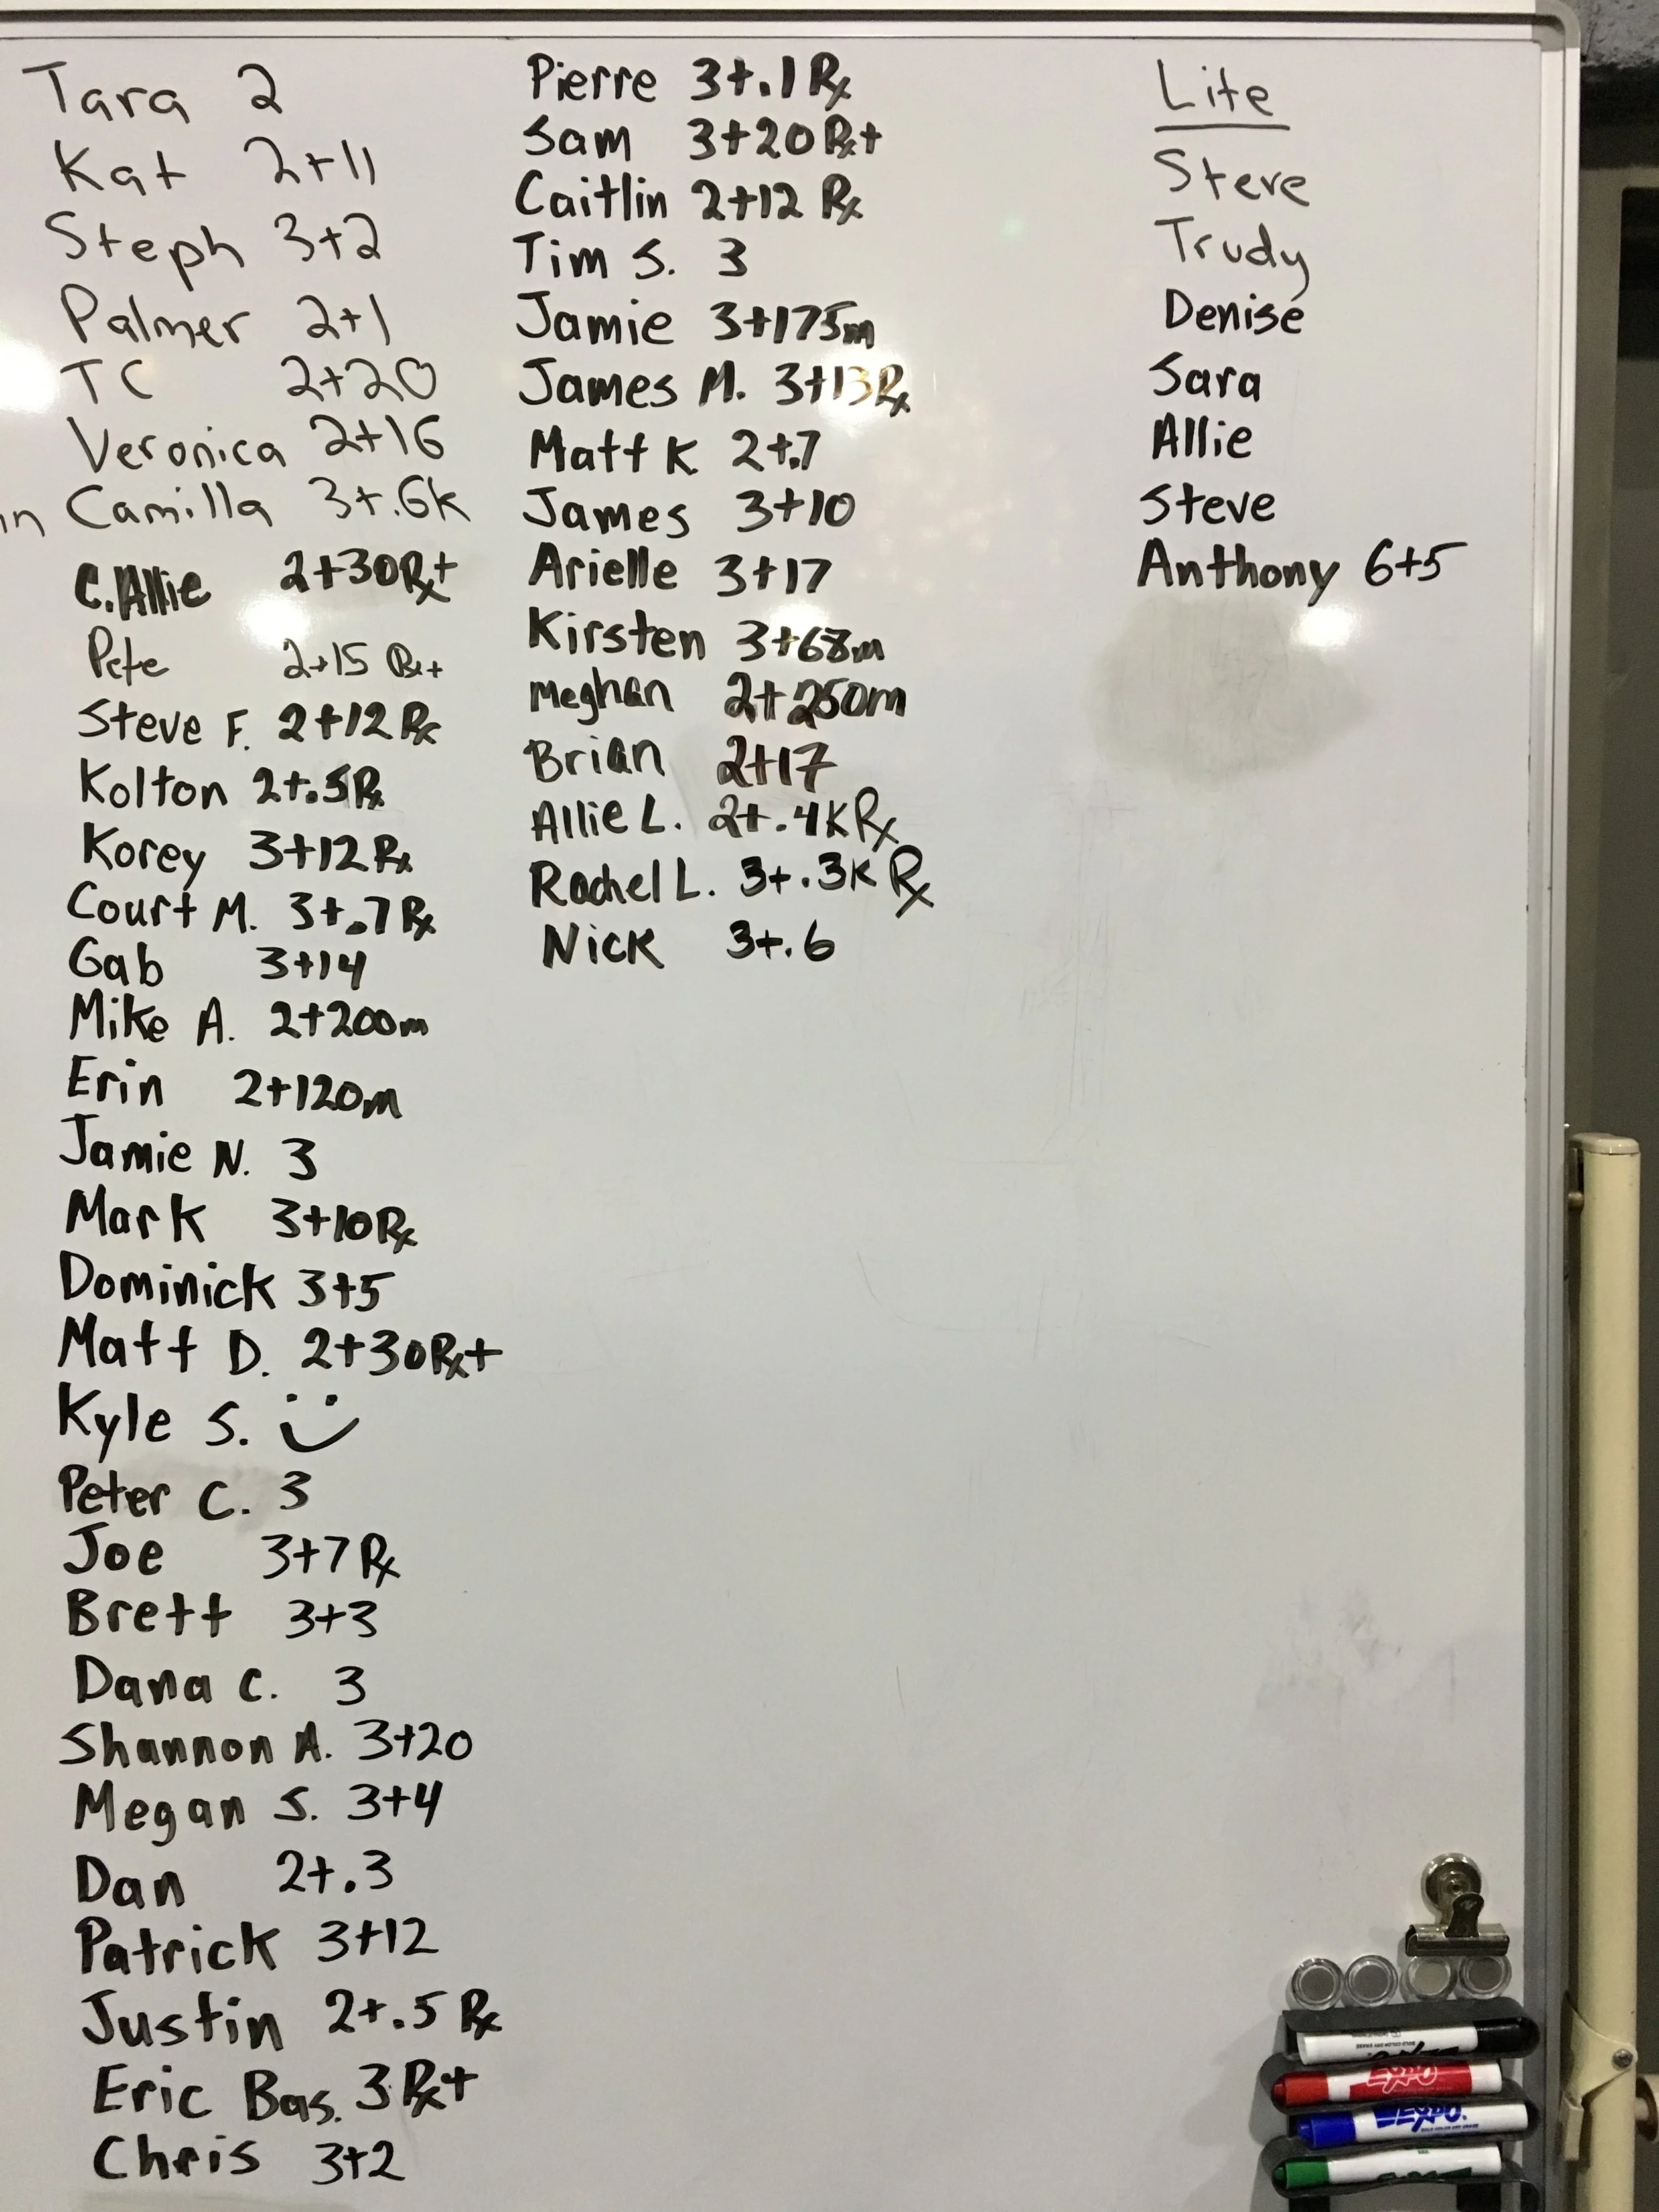 Tara 2
Kat 2+11
Steph 3+2
Palmer 2+1
TC 2+20
Veronica 2+16
in Camilla 3+.6k
C.Allie 2+30Rx+
Pete 2+15 Rx+
Steve F. 2+12 Rx
Kolton 2+.5Rx
Korey 3+12Rx
Court M. 3+.7Rx
Gab 3+14
Mike A. 2+200m
Erin 2+120m
Jamie N. 3
Mark 3+10Rx
Dominick 3+5
Matt D. 2+30Rx+
Kyle S.
Peter C. 3
Joe 3+7 Rx
Brett 3+3
Dana C. 3
Shannon A. 3+20
Megan S. 3+4
Dan 2+.3
Patrick 3+12
Justin 2+.5 Rx
Eric Bas. 3 Rx+
Chris 3+2
Pierre 3+.1 Rx
Sam 3+20 Rx+
Caitlin 2+12 Rx
Tim S. 3
Jamie 3+175m
James M. 3+13Rx
Matt K 2+.7
James 3+10
Arielle 3+17
Kirsten 3+68m
Meghan 2+250m
Brian 2+17
Allie L. 2+.4K Rx
Rachel L. 3+.3K Rx
Nick 3+.6
Lite
Steve
Trudy
Denise
Sara
Allie
Steve
Anthony 6+5
EXPO
EXPO.